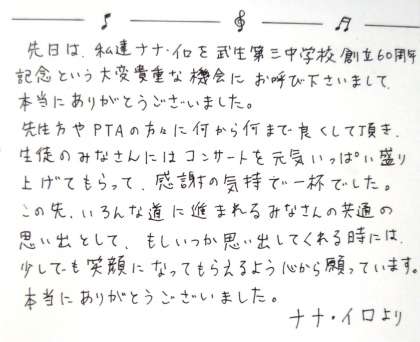 先日は、私達ナナ・イロを武生第三中学校創立60周年
記念という大変貴重な機会にお呼び下さいまして、
本当にありがとうございました。
先生方やPTAの方々に何から何まで良くして頂き、
生徒のみなさんにはコンサートを元気いっぱい盛り
上げてもらって、感謝の気持で一杯でした。
この先、いろんな道に進まれるみなさんの共通の
思い出として、もしいつか思い出してくれる時には、
少しでも笑顔になってもらえるよう心から願っています。
本当にありがとうございました。
ナナ・イロより